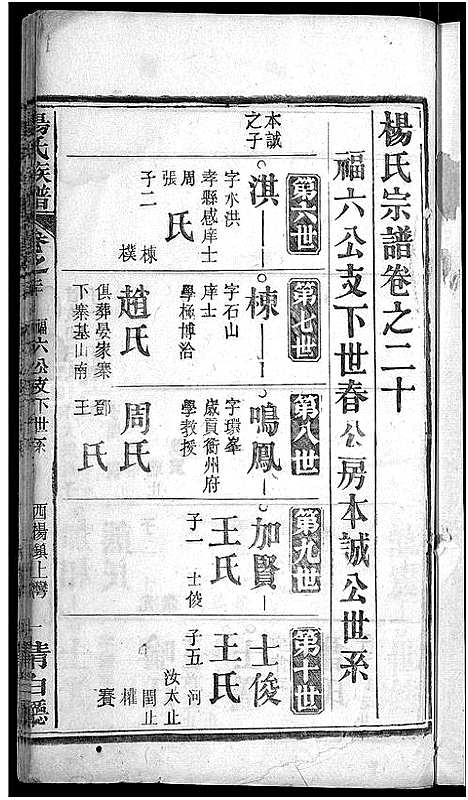 楊氏宗譜卷之二十
福六公支下世春公房本誠公世系
第六世
第七世
第八世
第九世
第十世
本誠之子
淇
字水洪
孝縣感庠士
周
張
氏
子二
棟
樸
棟
字石山
庠士
學極博洽
趙氏
俱葬晏家寨
下寨基山南
鳴鳳
字環峯
歲貢衡州府
學教授
周氏
鄧
王
氏
加賢
王氏
子一
士俊
士俊
王氏
子五
河
汝太止
閏止
權
賽
楊氏族譜
卷之
福六公支下世系
西楊鎮上灣
一
清白